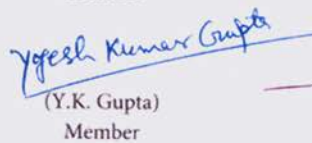 Yogesh Kumar Gupta
(Y.K. Gupta)
Member